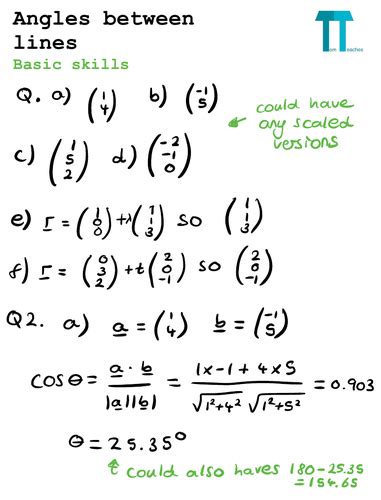 Angles between
lines
Tom Teaches
Basic skills
Q. a) (1 4) b) (-1 5)
could have
any scaled
versions
c) (1 5 2) d) (-2 -1 0)
e) r = (1 0 0) + λ(1 1 3) so (1 1 3)
f) r = (0 3 2) + t(2 0 -1) so (2 0 -1)
Q2. a) a = (1 4) b = (-1 5)
cos θ = a · b / |a||b| = 1x-1 + 4x5 / √1²+4² √1²+5² = 0.903
θ = 25.35°
could also haves 180-25.35
= 154.65